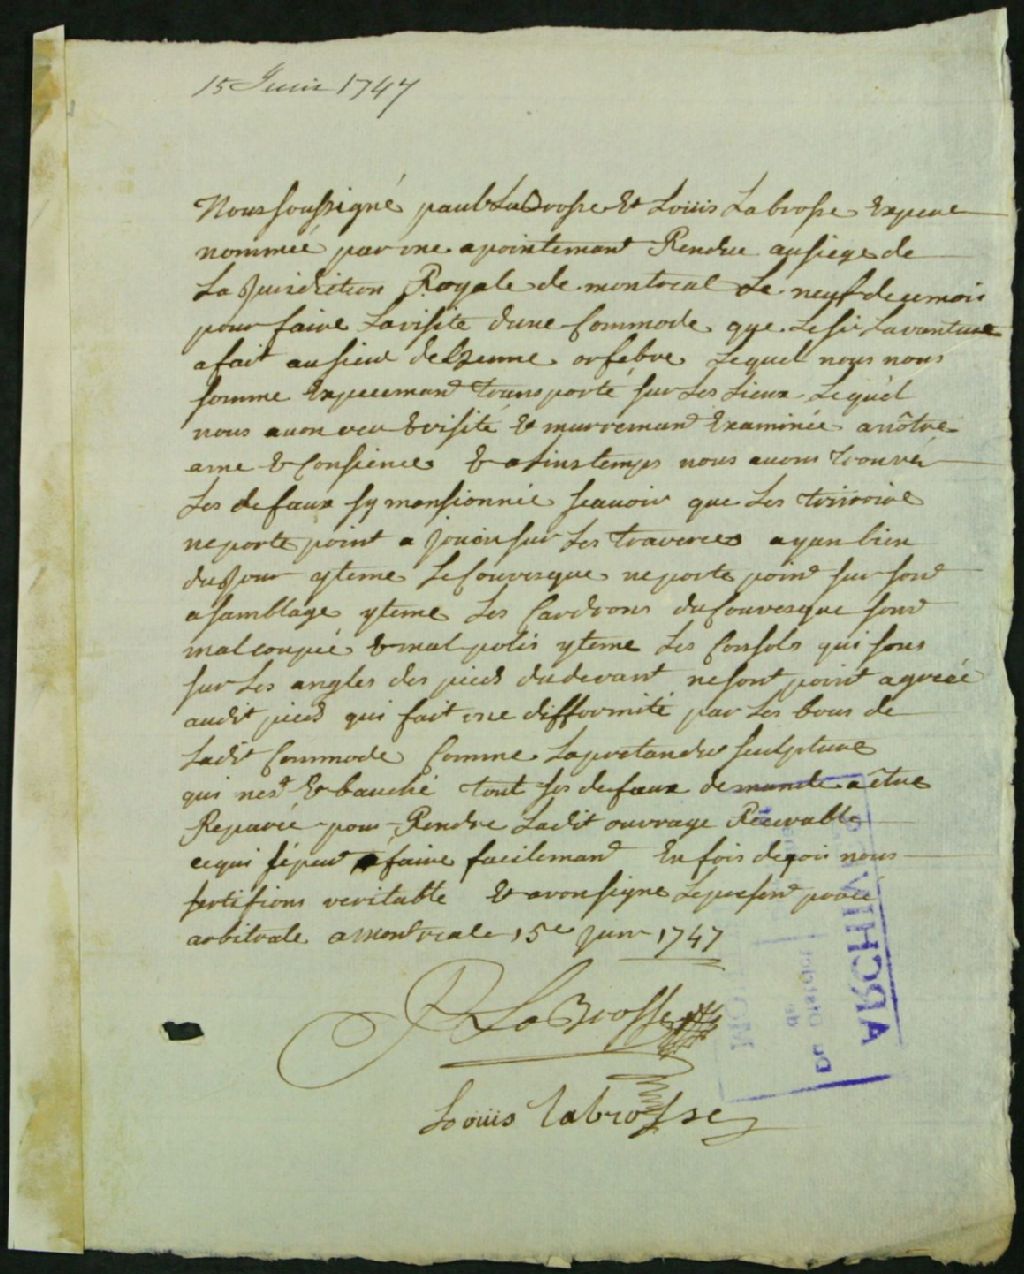 15 Juin 1747
Nous soussigné paul LaBrosse Et Loüis Labrosse Expere
nommeé par une apointemant Rendue ausiege de
La Juridiction Royale de montreal Le neuf de cemois
pour faire Lavisite dune Commode que Lesir Lavanture
afait ausieur deLzenne orfebre Lequel nous nous
somme Expreemand transporté sur Les Lieux Lequel
nous auon veu & visité & murremand Examinée anôtre
ame & Consience & a
temps nous auons trouvé
Les defaux sy mansionnié seauoir que Les tirroire
neporte point a
sur Les traverce ayan bien
duJour yteme Le Couvesque neporte poind sur sond
asamblage yteme Les Cardrons du Couvesque sond
mal coupié & mal polis yteme Les Consols qui sons
sur Les angles des pieds dudevant nesont point agreée
audit pied qui fait une difformité par Les bous de
Ladit Commode Comme Lapretandu sculpture
qui nesd Ebauché tout ses defaux demande a être
Reparié pour Rendre Ladit ouvrage Recevable
cequi sepeut faire facilemand En fois dequoi nous
sertifions veritable & avonsigne Lepresend proce
arbitrale a Montreale 15e juin 1747
P LaBrosse
Loüis labrosse
ARCHIVES
Du District
de
MO